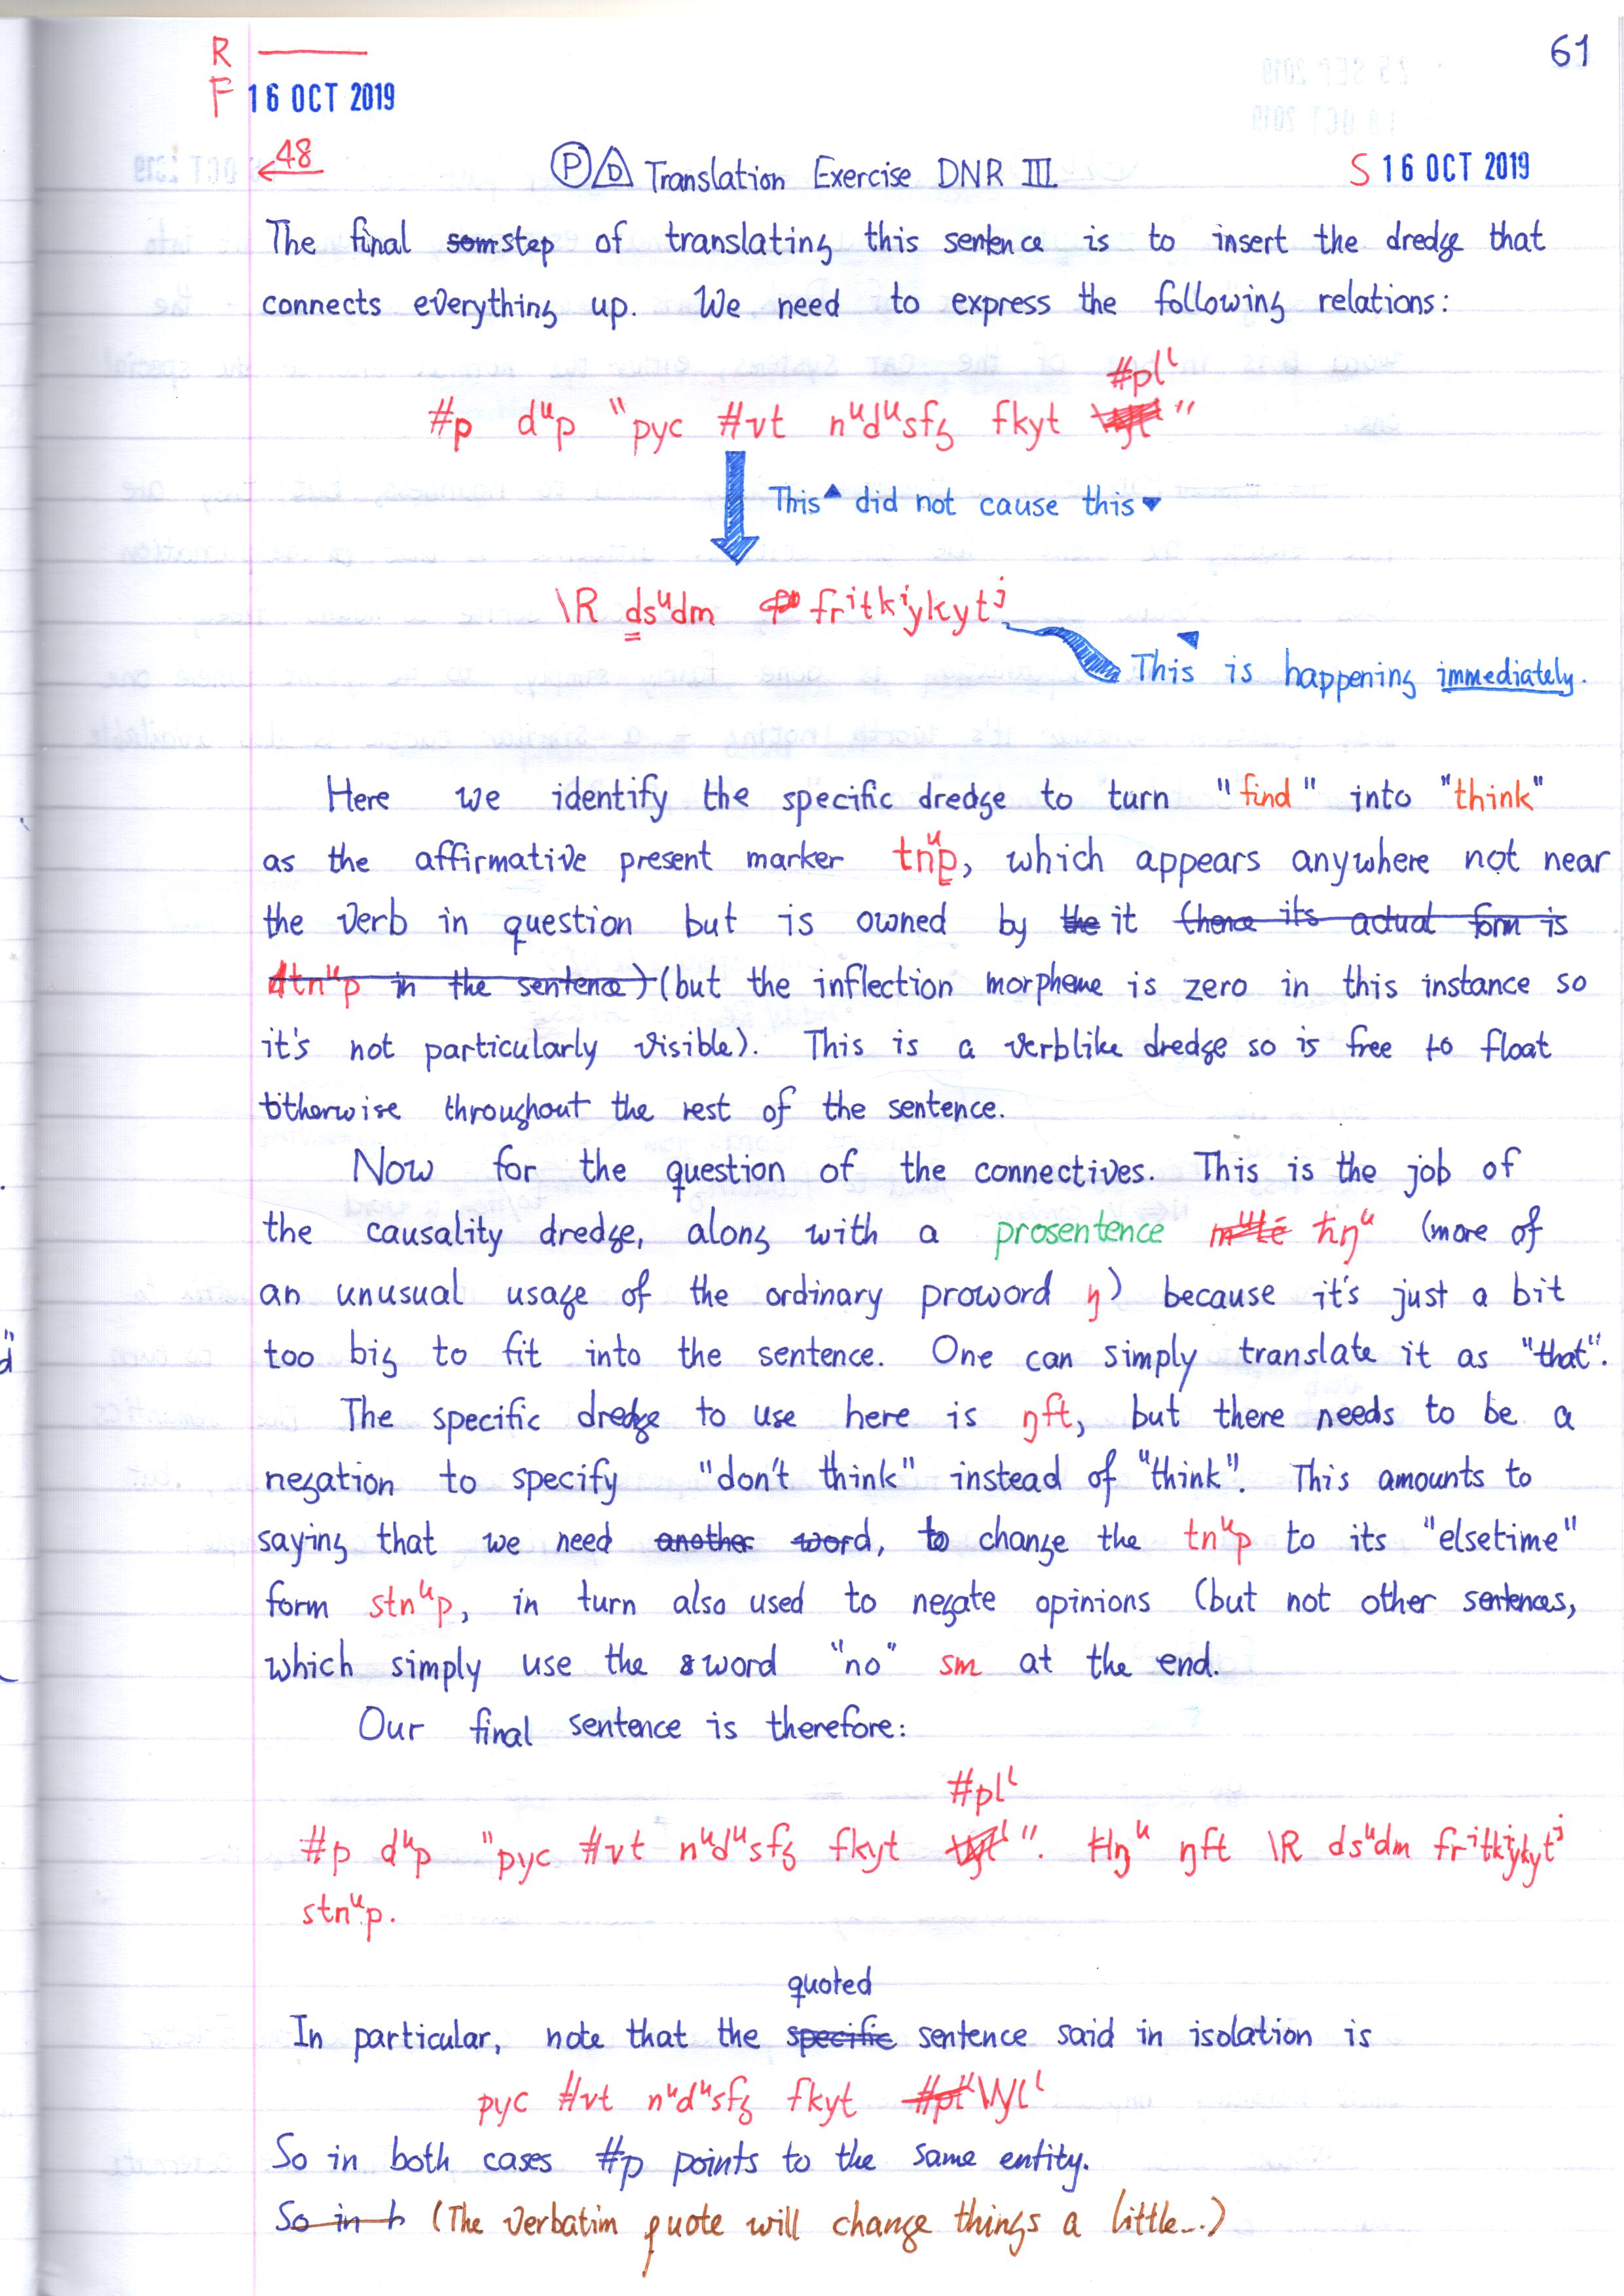 R ——— 61
F 16 OCT 2019
←48 Ⓟ D Translation Exercise DNR III S 16 OCT 2019
The final som step of translating this sentence is to insert the dredge that
connects everything up. We need to express the following relations:
#plˡ
#p dᵘp "pyc #vt nᵘdᵘsfʒ fkyt "
This▲ did not cause this▼
\R dsᵘdm frⁱtkⁱykytʲ
This is happening immediately.
Here we identify the specific dredge to turn "find" into "think"
as the affirmative present marker tnᵘp, which appears anywhere not near
the verb in question but is owned by the it (hence its actual form is
tnᵘp in the sentence) (but the inflection morpheme is zero in this instance so
it's not particularly visible). This is a verblike dredge so is free to float
otherwise throughout the rest of the sentence.
Now for the question of the connectives. This is the job of
the causality dredge, along with a prosentence ħŋᵘ (more of
an unusual usage of the ordinary proword ŋ) because it's just a bit
too big to fit into the sentence. One can simply translate it as "that".
The specific dredge to use here is ŋft, but there needs to be a
negation to specify "don't think" instead of "think". This amounts to
saying that we need another word, to change the tnᵘp to its "elsetime"
form stnᵘp, in turn also used to negate opinions (but not other sentences,
which simply use the word "no" sm at the end.
Our final sentence is therefore:
#plˡ
#p dᵘp "pyc #vt nᵘdᵘsfʒ fkyt ". Ħŋᵘ ŋft \R dsᵘdm frⁱtkⁱykytʲ
stnᵘp.
quoted
In particular, note that the specific sentence said in isolation is
pyc #vt nᵘdᵘsfʒ fkyt #plˡ Wylˡ
So in both cases #p points to the same entity.
So in b (The verbatim quote will change things a little...)